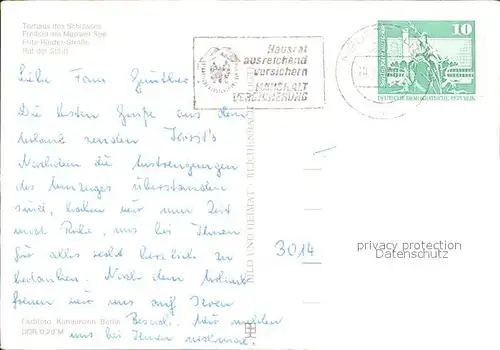 Torhaus des Schlosses
Freibad am Malower See
Fritz-Reuter-Straße
Rat der Stadt
Hausrat
ausreichend
versichern
HAUSHALT
VERSICHERUNG
10
DEUTSCHE DEMOKRATISCHE REPUBLIK
Liebe Fam. Günther
Die besten Grüße aus dem
Urlaub senden
Nachdem die Anstrengungen
des Umzuges überstanden
sind, haben wir nun Zeit
und Ruhe, uns bei Ihnen
für alles recht herzlich zu
bedanken. Nach dem Urlaub
freuen wir uns auf Ihren
Besuch. Wir möchten
uns bei Ihnen nochmal.
3014
privacy protection
Datenschutz
BILD UND HEIMAT REICHENBACH
Farbfoto: Kühlmann, Berlin
DDR 0,20 M